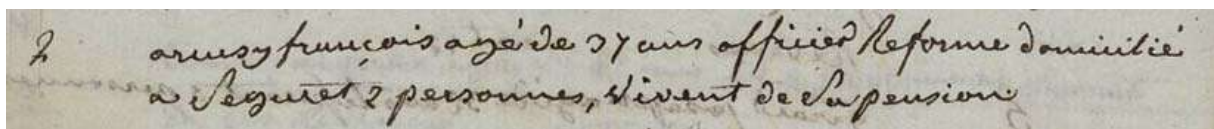 2 françois agé de 37 ans officier Reformé domicilié
a Seguret 2 personnes, vivent de Sa pension